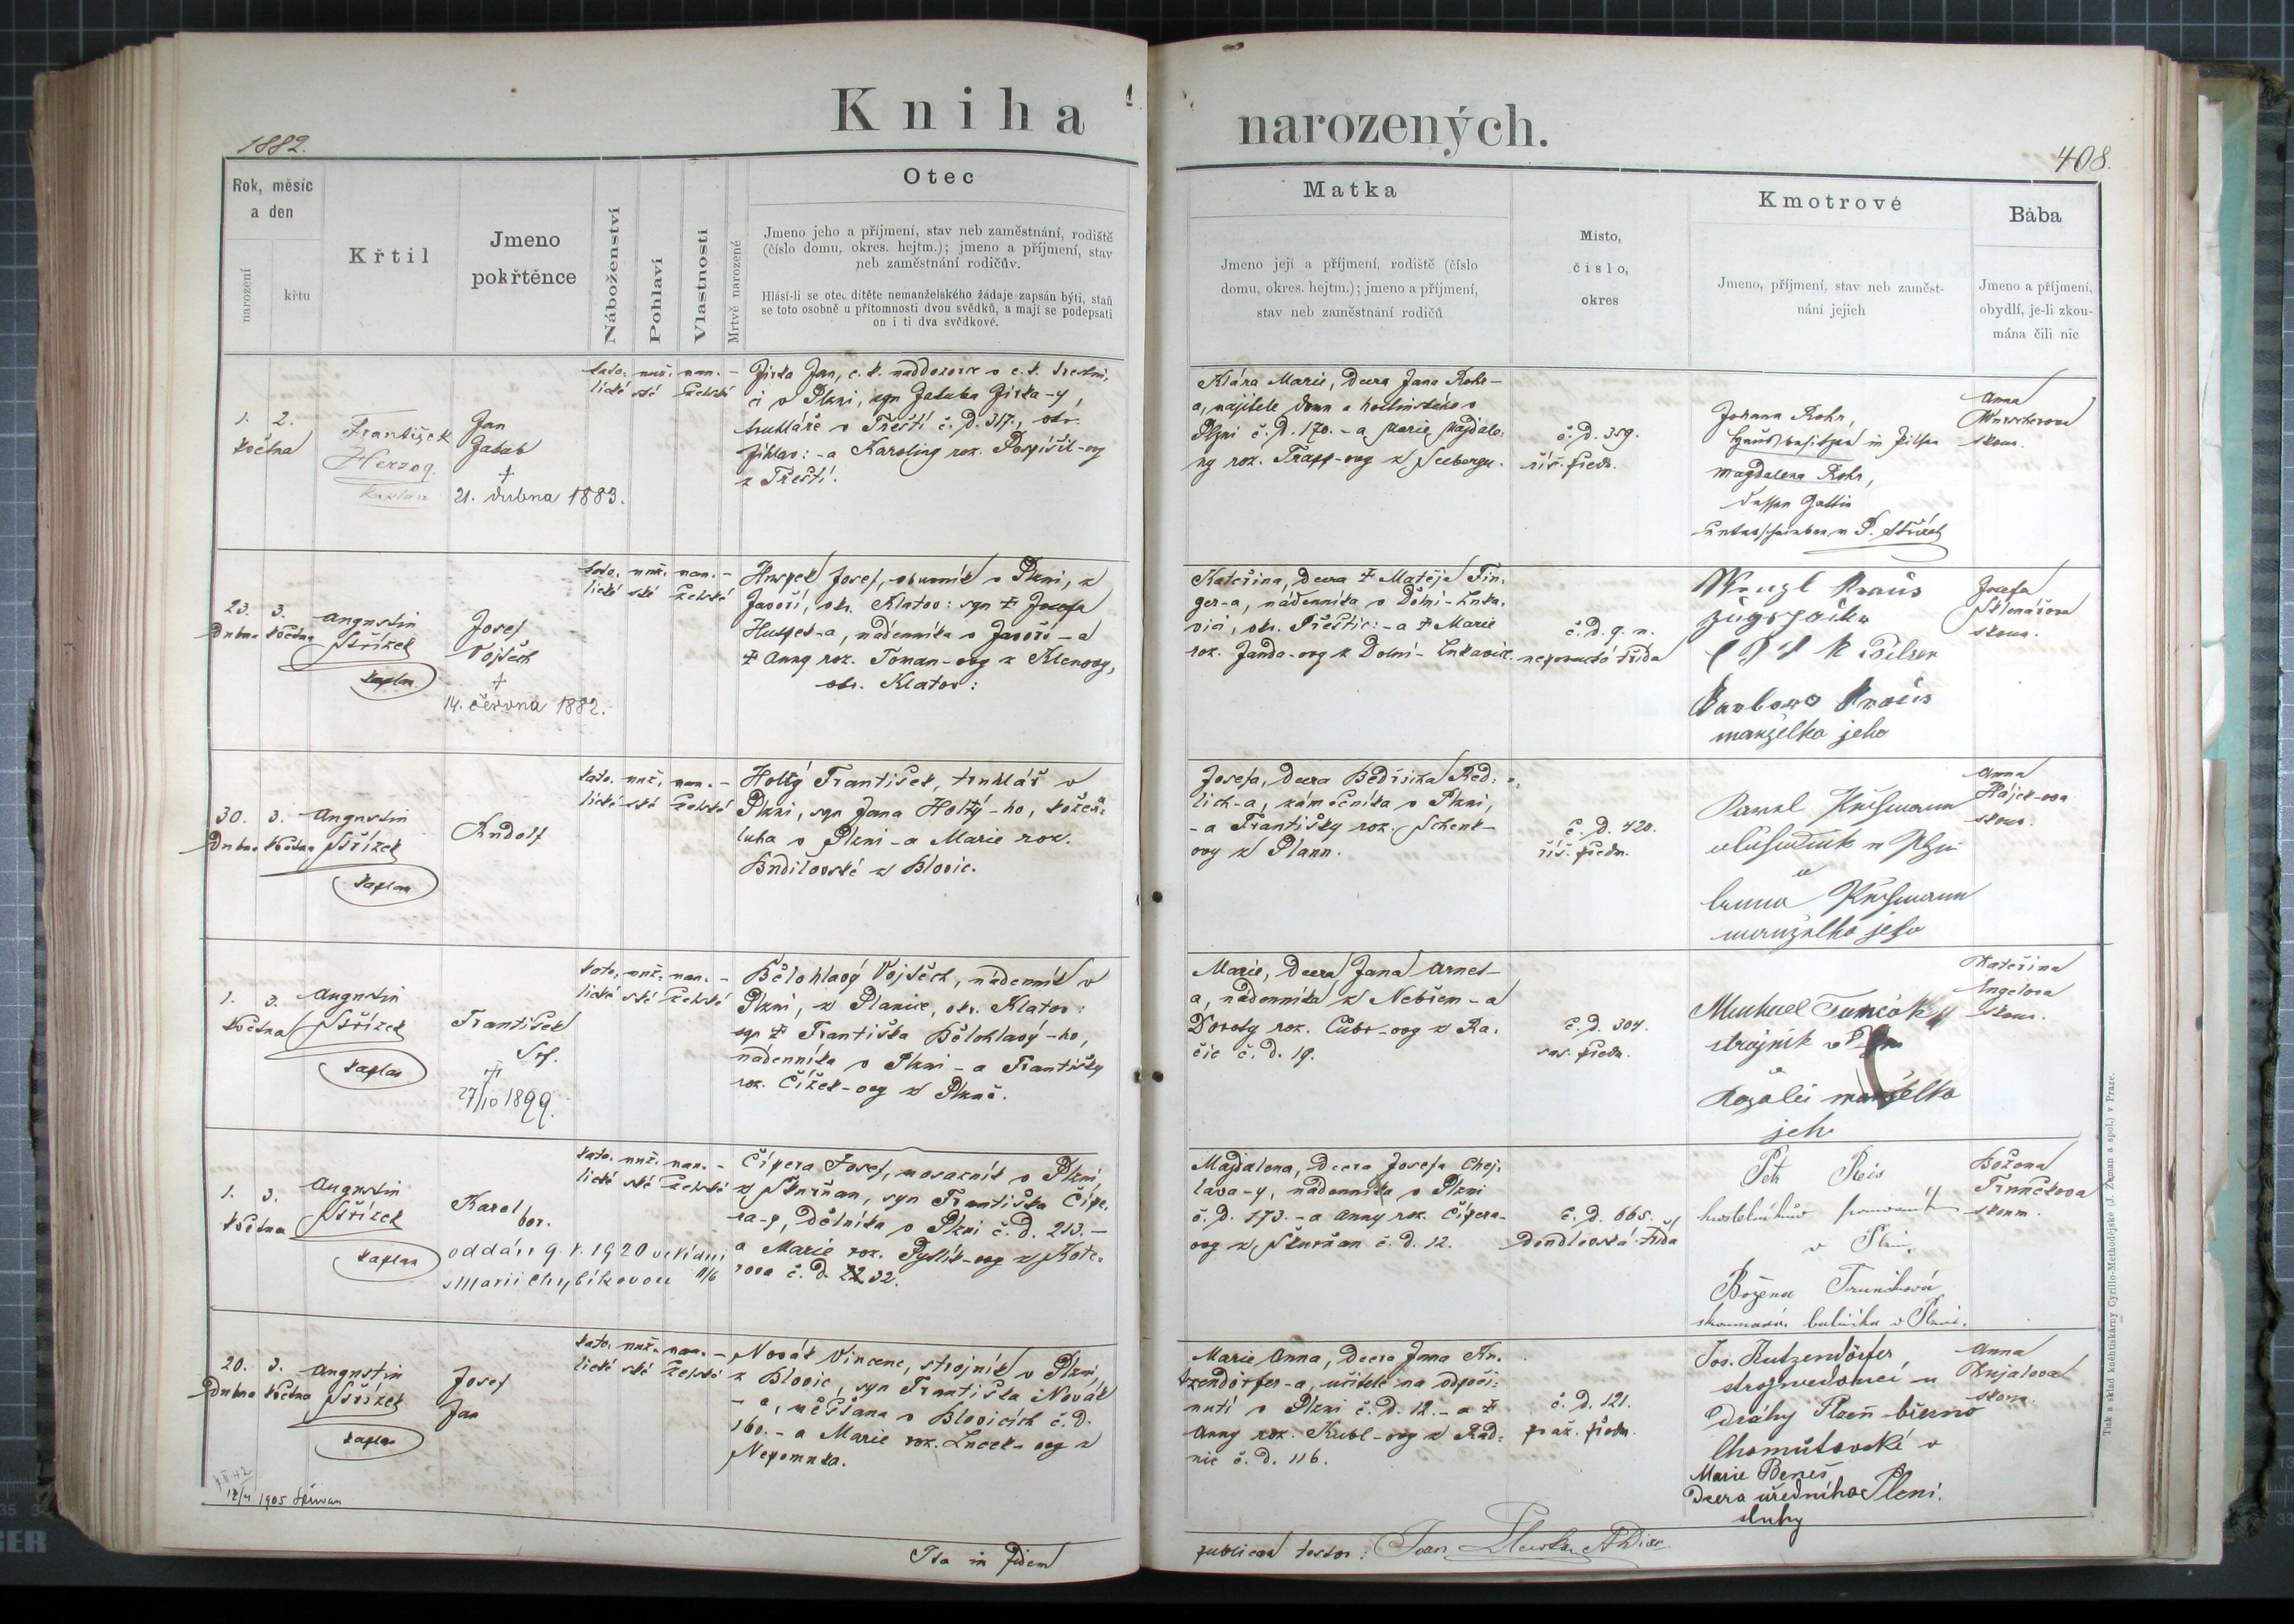 Kniha
narozených.
1882.
408.
Rok, měsíc
a den
narození
křtu
Křtil
Jmeno
pokřtěnce
Náboženství
Pohlaví
Vlastnosti
Mrtvě narozené
Otec
Jmeno jeho a příjmení, stav neb zaměstnání, rodiště
(číslo domu, okres. hejtm.); jmeno a příjmení, stav
neb zaměstnání rodičův.
Hlásí-li se otec dítěte nemanželského žádaje zapsán býti, staň
se toto osobně u přítomnosti dvou svědků, a mají se podepsati
on i ti dva svědkové.
Matka
Jmeno její a příjmení, rodiště (číslo
domu, okres. hejtm.); jmeno a příjmení,
stav neb zaměstnání rodičů
Místo,
číslo,
okres
Kmotrové
Jmeno, příjmení, stav neb zaměst-
nání jejich
Bába
Jmeno a příjmení,
obydlí, je-li zkou-
mána čili nic
1. 2.
května
František
Herzog
kaplan
Jan
Jakub
†
21. dubna 1883.
kato. muž. man. –
lické ské želské
Jirka Jan, c. k. naddozorce v c. k. trestni-
ci v Plzni, syn Jakuba Jirka-y,
truhláře v Třešti č. D. 317., okr.
Jihlav: - a Karoliny roz. Pospíšil-ovy
z Třeště.
Klára Marie, dcera Jana Rohr-
a, majitele domu a hostinského v
Plzni č. D. 170. - a Marie Magdale-
ny roz. Trapp-ovy z Seebergu.
č. D. 359.
říš. předm.
Johann Rohr,
Hausbesitzer in Pilsen
Magdalena Rohr,
dessen Gattin
P. Střízek
Anna
skoum.
23. 3.
Dubna května
Augustin
Střízek
kaplan
Josef
Vojtěch
†
14. června 1882.
kato. muž. man. –
lické ské želské
Huspek Josef, obuvník v Plzni, z
Javoří, okr. Klatov: syn † Josefa
Huspek-a, nádenníka v Javoří - a
† Anny roz. Toman-ovy z Klenovy,
okr. Klatov:
Kateřina, dcera † Matěje Fin-
ger-a, nádenníka v Dolní-Luka-
vici, okr. Přeštic: - a † Marie
roz. Janda-ovy z Dolní-Lukavice.
č. D. q. n.
nepomucká třída
Wenzl Kraus
Pilsen
Barbara Kraus
manželka jeho
Josefa
skoum.
30. 3.
Dubna května
Augustin
Střízek
kaplan
Rudolf
kato. muž. man. –
lické ské želské
Holtý František, truhlář v
Plzni, syn Jana Holtý-ho, kože-
luha v Plzni - a Marie roz.
Budilovské z Blovic.
Josefa, dcera Bedřicha Red-
lich-a, zámečníka v Plzni,
- a Františky roz. Schenk-
ovy z Plann.
č. D. 420.
říš. předm.
manželka jeho
Anna
Hájek-ova
skoum.
1. 3.
května
Augustin
Střízek
kaplan
František
Srf.
†
27/10 1899.
kato. muž. man. –
lické ské želské
Bělohlavý Vojtěch, nádenník v
Plzni, z Planice, okr. Klatov:
syn † Františka Bělohlavý-ho,
nádenníka v Plzni - a Františky
roz. Čížek-ovy z Plzně.
Marie, dcera Jana Arnet-
a, nádenníka z Nebřem - a
Doroty roz. Cubr-ovy z Ra-
čic č. D. 19.
č. D. 304.
sas. předm.
strojník v
a
Rozalie manželka
jeho
Kateřina
Engelova
skoum.
1. 3.
května
Augustin
Střízek
kaplan
Karel
bor.
oddán 9. V. 1920 ve Vídni
s Marií Chybíkovou II/6
kato. muž. man. –
lické ské želské
Čípera Josef, mosazník v Plzni,
z Skurňan, syn Františka Čípe-
ra-y, dělníka v Plzni č. D. 213. -
a Marie roz. Pytlík-ovy z Kote-
rova č. D. 32.
Magdalena, dcera Josefa Chej-
lava-y, nádenníka v Plzni
č. D. 173. - a Anny roz. Čípera-
ovy z Skurňan č. D. 12.
č. D. 665.
Doudlevská třída
Petr Reis
v Plzni,
Božena Trunečková
zkoumaná babička v Plzni.
Božena
Trunečkova
skoum.
20. 3.
Dubna května
Augustin
Střízek
kaplan
Josef
Jan
kato. muž. man. –
lické ské želské
Novák Vincenc, strojník v Plzni,
z Blovic, syn Františka Novák
- a, měšťana v Blovicích č. D.
160. - a Marie roz. Lucek-ovy z
Nepomuka.
Marie Anna, dcera Jana Ru-
tzendörfer-a, učitele na odpoči-
nutí v Plzni č. D. 12. - a †
Anny roz. Kubl-ovy z Rad-
nic č. D. 116.
č. D. 121.
praž. předm.
Jos. Rutzendörfer,
strojvedoucí u
dráhy Plzeň-březno
Chomútovské v
Plzni.
Marie Beneš
Dcera úředního
sluhy
Anna
skoum.
12/4 1905
Ita in fidem
publicam testor: Joan.
Tisk a sklad knihtiskárny Cyrillo-Methodějské (J. Zeman a spol.) v Praze.